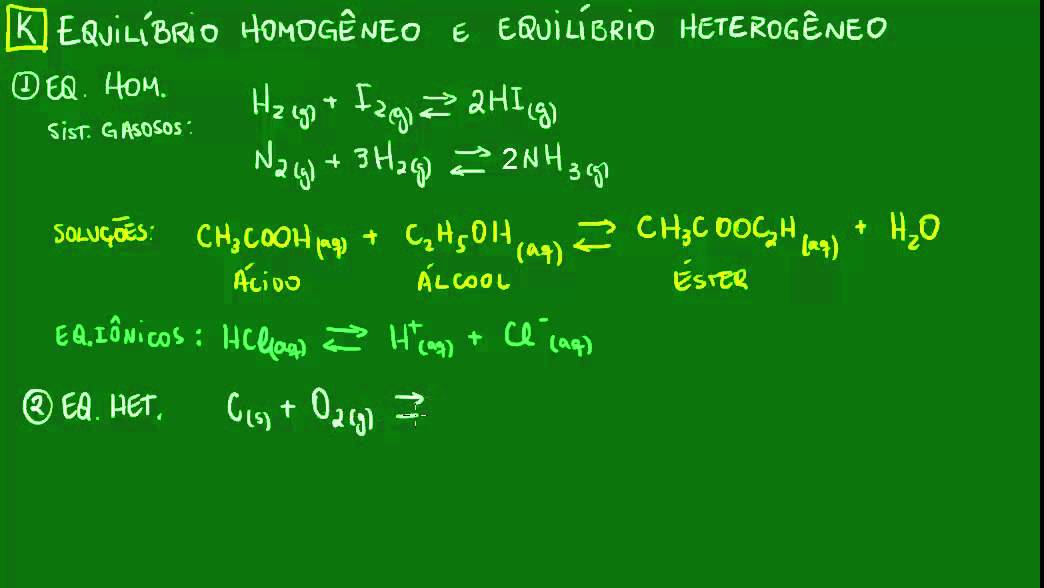 K EQUILÍBRIO HOMOGÊNEO E EQUILÍBRIO HETEROGÊNEO
① EQ. HOM.
H₂(g) + I₂(g) ⇌ 2HI(g)
SIST. GASOSOS:
N₂(g) + 3H₂(g) ⇌ 2NH₃(g)
SOLUÇÕES: CH₃COOH(aq) + C₂H₅OH(aq) ⇌ CH₃COOC₂H(aq) + H₂O
ÁCIDO ÁLCOOL ÉSTER
EQ.IÔNICOS: HCl(aq) ⇌ H⁺(aq) + Cl⁻(aq)
② EQ. HET. C(s) + O₂(g) ⇌